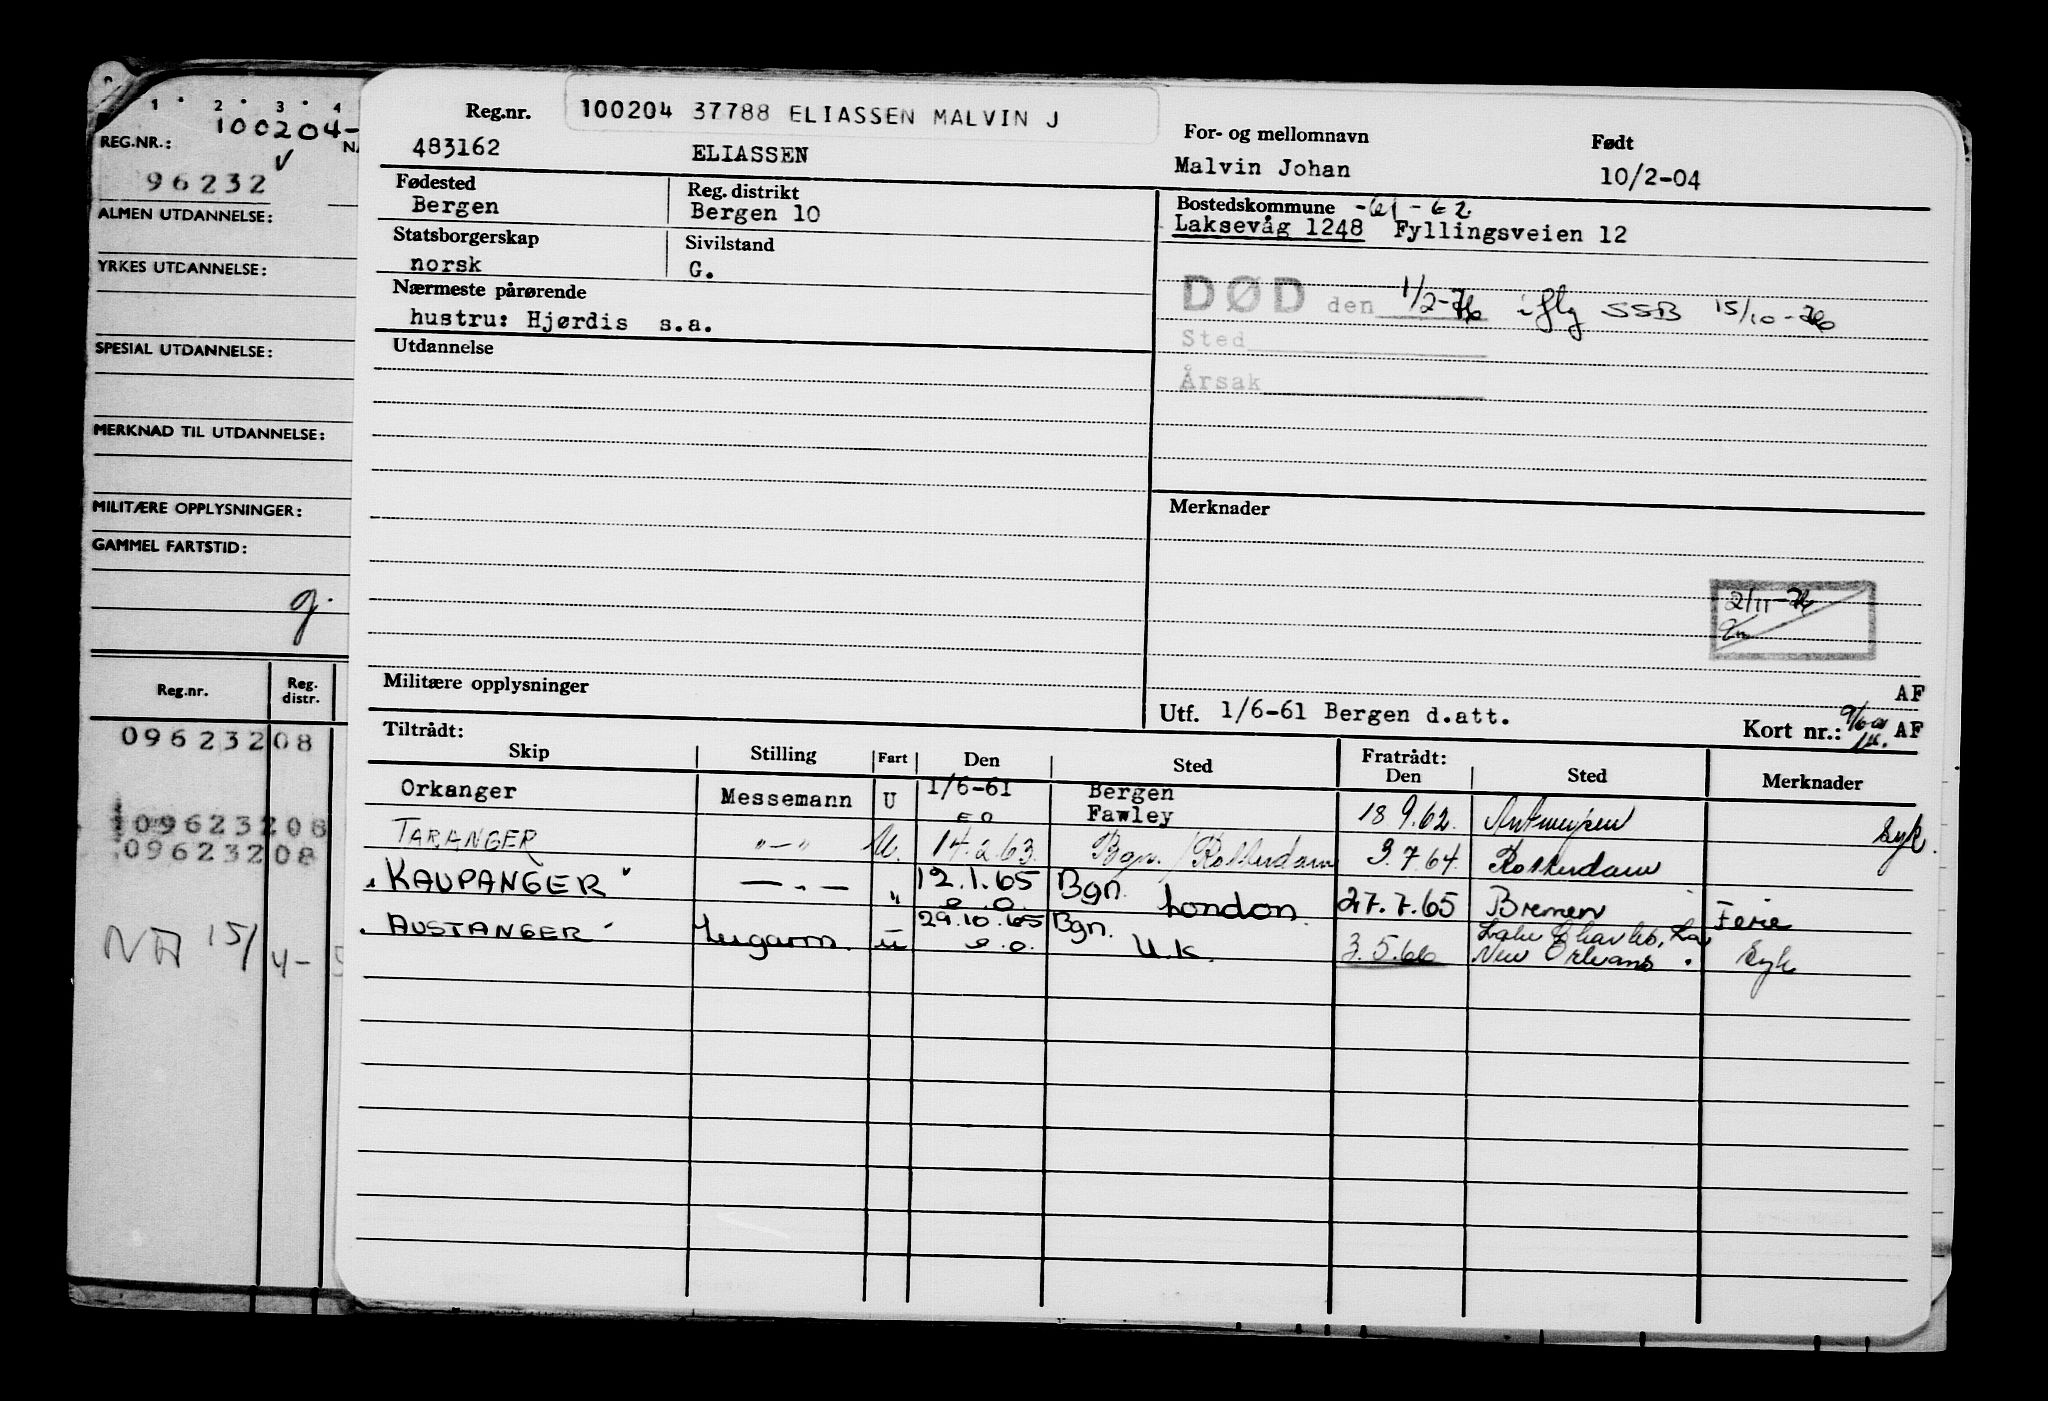 1 2 3 4
100204-
REG.NR.:
96232
ALMEN UTDANNELSE:
YRKES UTDANNELSE:
SPESIAL UTDANNELSE:
MERKNAD TIL UTDANNELSE:
MILITÆRE OPPLYSNINGER:
GAMMEL FARTSTID:
g.
Reg.nr. Reg. distr.
09623208
09623208
09623208
15/4-
Reg.nr. 100204 37788 ELIASSEN MALVIN J
For- og mellomnavn Født
483162 ELIASSEN Malvin Johan 10/2-04
Fødested Reg. distrikt Bostedskommune -61-62
Bergen Bergen 10 Laksevåg 1248 Fyllingsveien 12
Statsborgerskap Sivilstand
norsk G.
DØD den 1/2-76 iflg SSB 15/10-76
Nærmeste pårørende
hustru: Hjørdis s.a.
Sted
Utdannelse
Årsak
Merknader
2/11-76
Militære opplysninger
AF
Utf. 1/6-61 Bergen d.att. Kort nr.: AF
Tiltrådt: Fratrådt:
Skip Stilling Fart Den Sted Den Sted Merknader
Orkanger Messemann U 1/6-61 Bergen
e o Fawley 18.9.62. Antwerpen Syk.
TARANGER "-" U. 14.2.63. Bgn./Rotterdam 3.7.64. Rotterdam
"KAUPANGER" — . — " 12.1.65 Bgn.
e.o. London. 27.7.65 Bremen Ferie
AUSTANGER Lugarm. u 29.10.65 Bgn. Lake Charles, La
e.o. U.K. 3.5.66 New Orleans. Syk